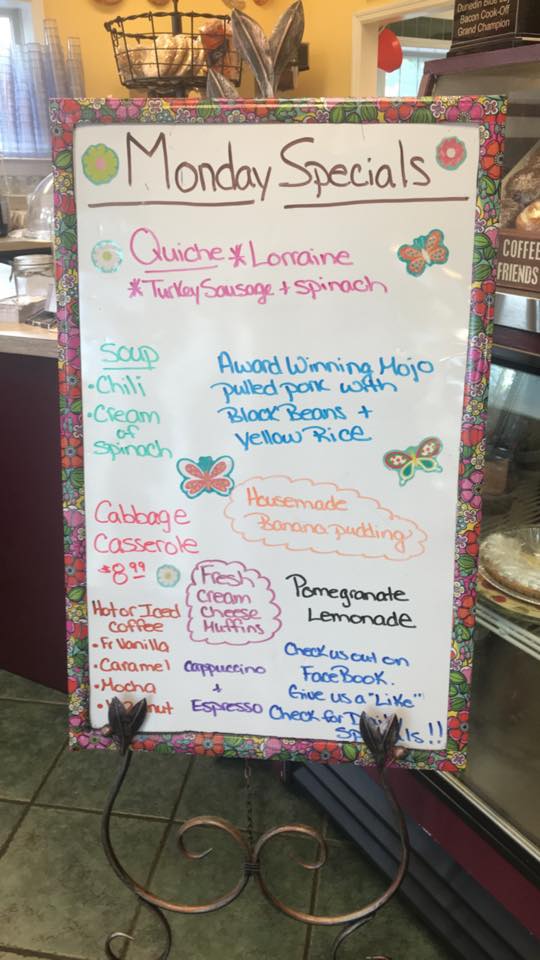 Dunedin Blue
Bacon Cook-Off
Grand Champion
COFFEE
FRIENDS
Monday Specials
Quiche *Lorraine
*Turkey Sausage + spinach
Soup
• Chili
• Cream
of
spinach
Award Winning Mojo
pulled pork with
Black Beans +
yellow Rice
Housemade
Banana pudding
Cabbage
Casserole
$8.99
Fresh
Cream
Cheese
Muffins
Pomegranate
Lemonade
Hot or Iced
coffee
• Fr Vanilla
• Caramel
• Mocha
Cappuccino
+
Espresso
Check us out on
FaceBook.
Give us a "Like"
Check for